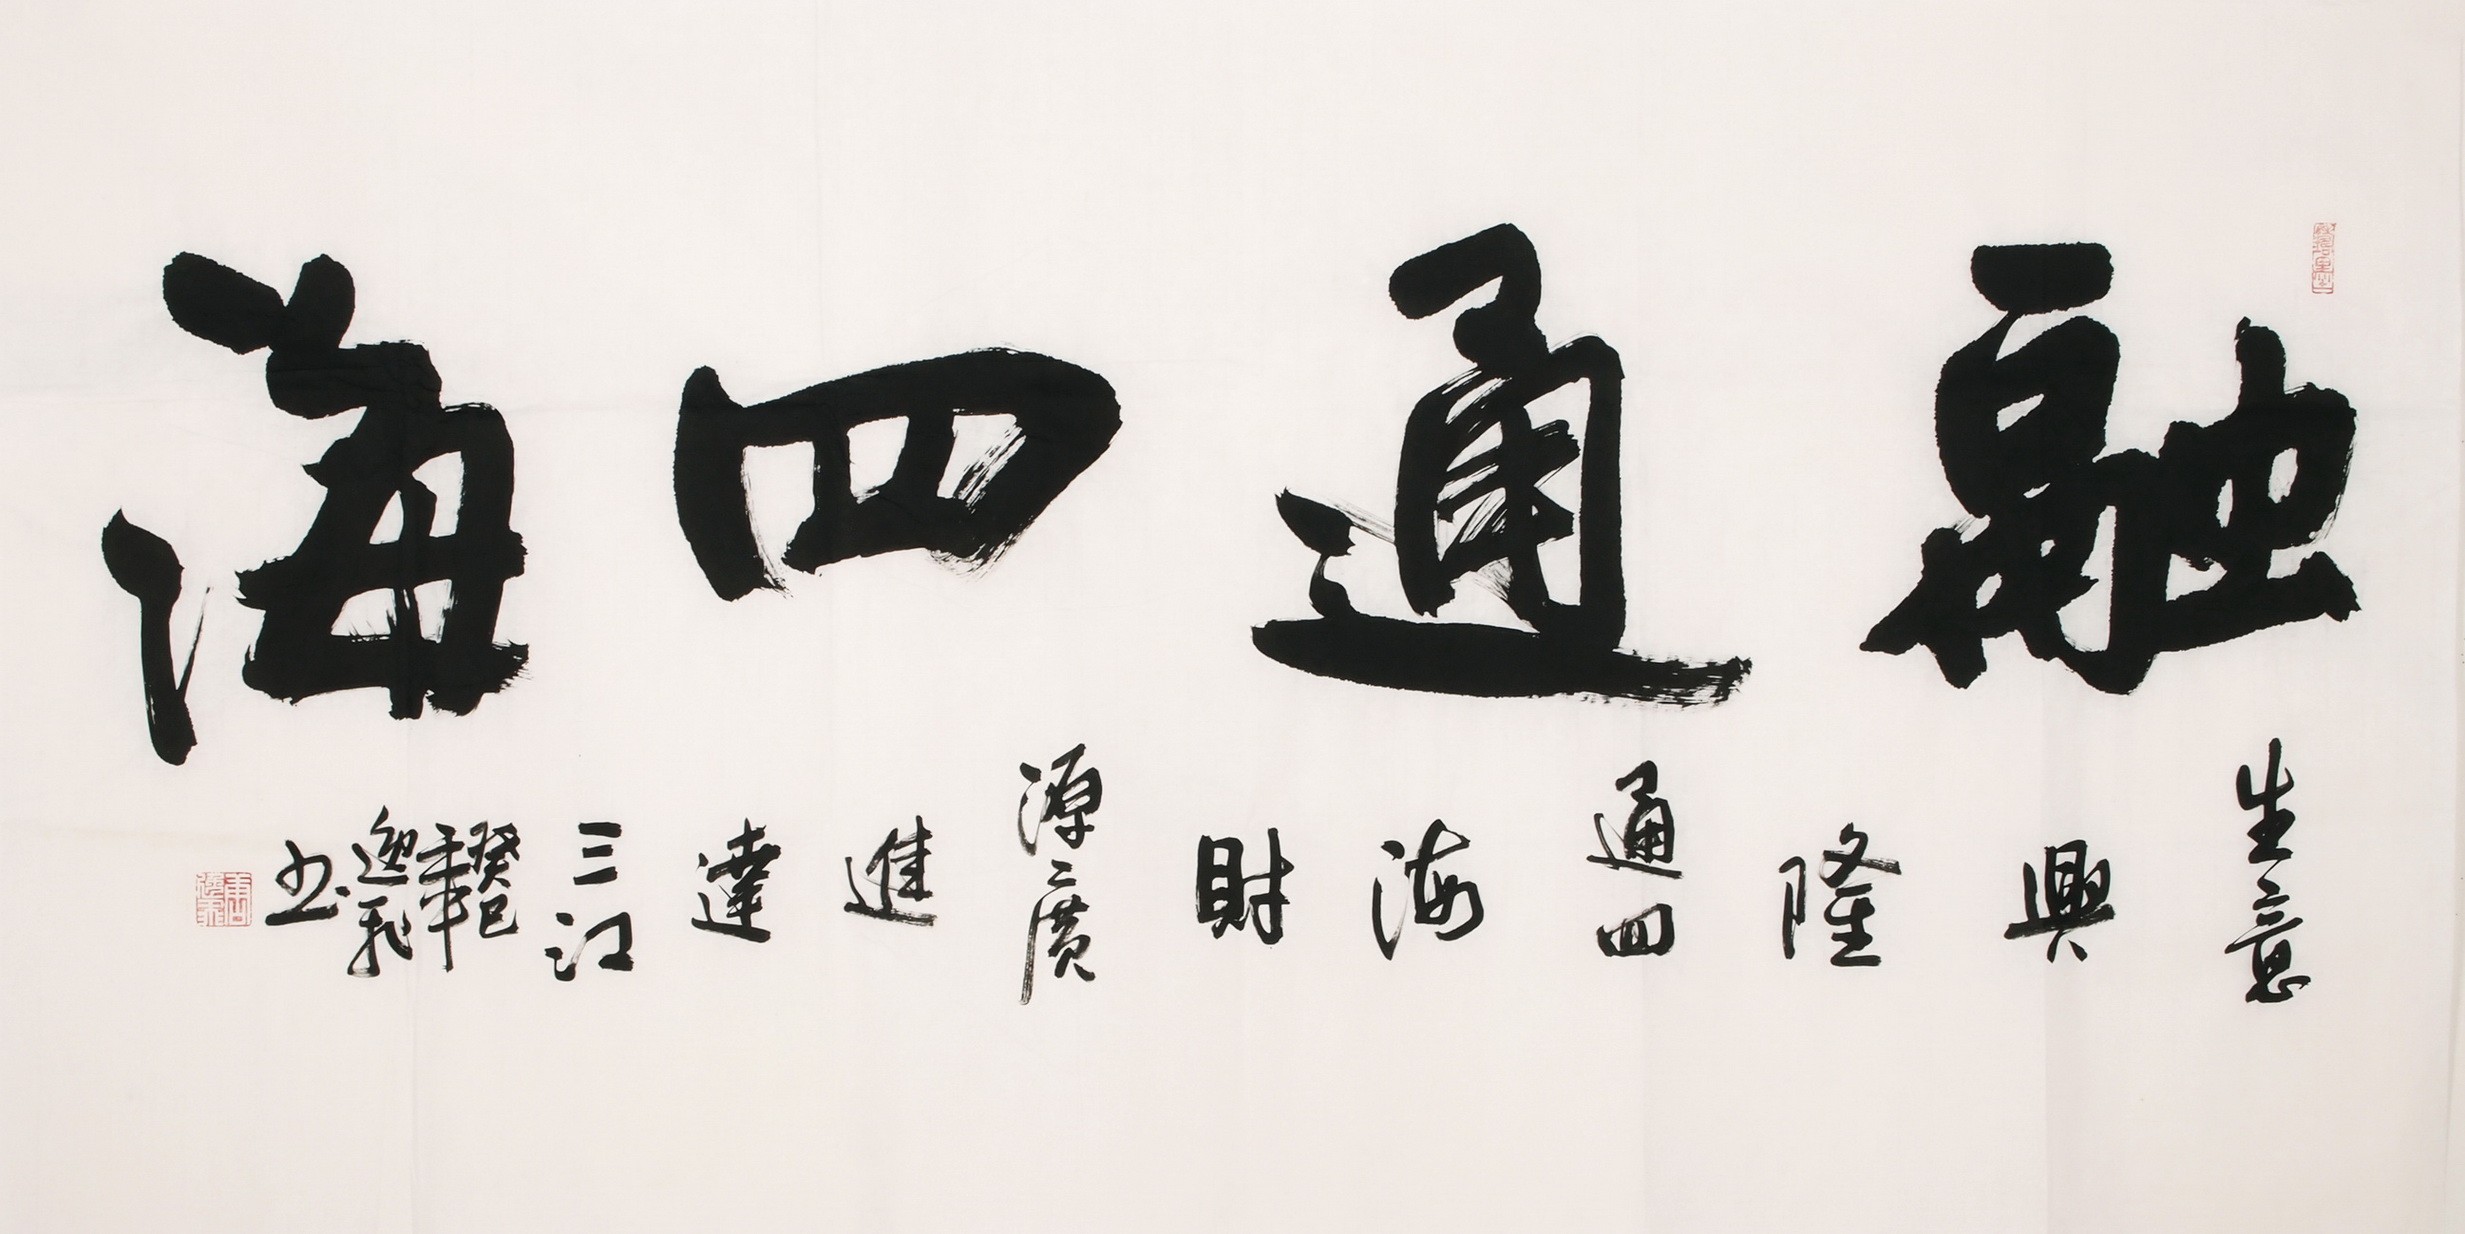 融通四海
生意興隆通四海財源廣進達三江
癸巳年
書